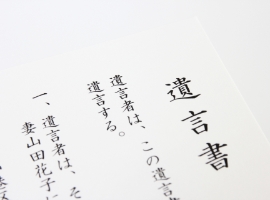 遺言書
遺言者は、この遺言
遺言する。
一、遺言者は、そ
妻山田花子に